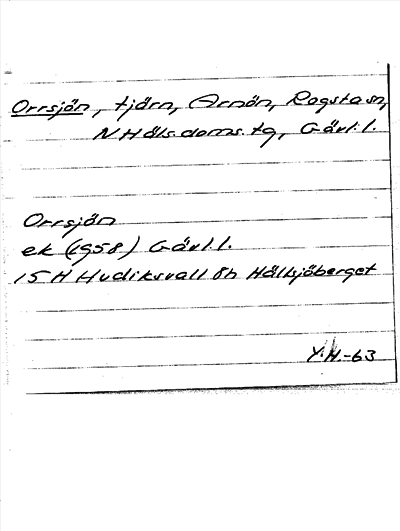 Orrsjön, tjärn, Arnön, Rogsta sn,
N Hälsdoms. tg, Gävl. l.
Orrsjön
ek (1958) Gävl. l.
15 H Hudiksvall 8h Hälsjöberget
Y.H.-63